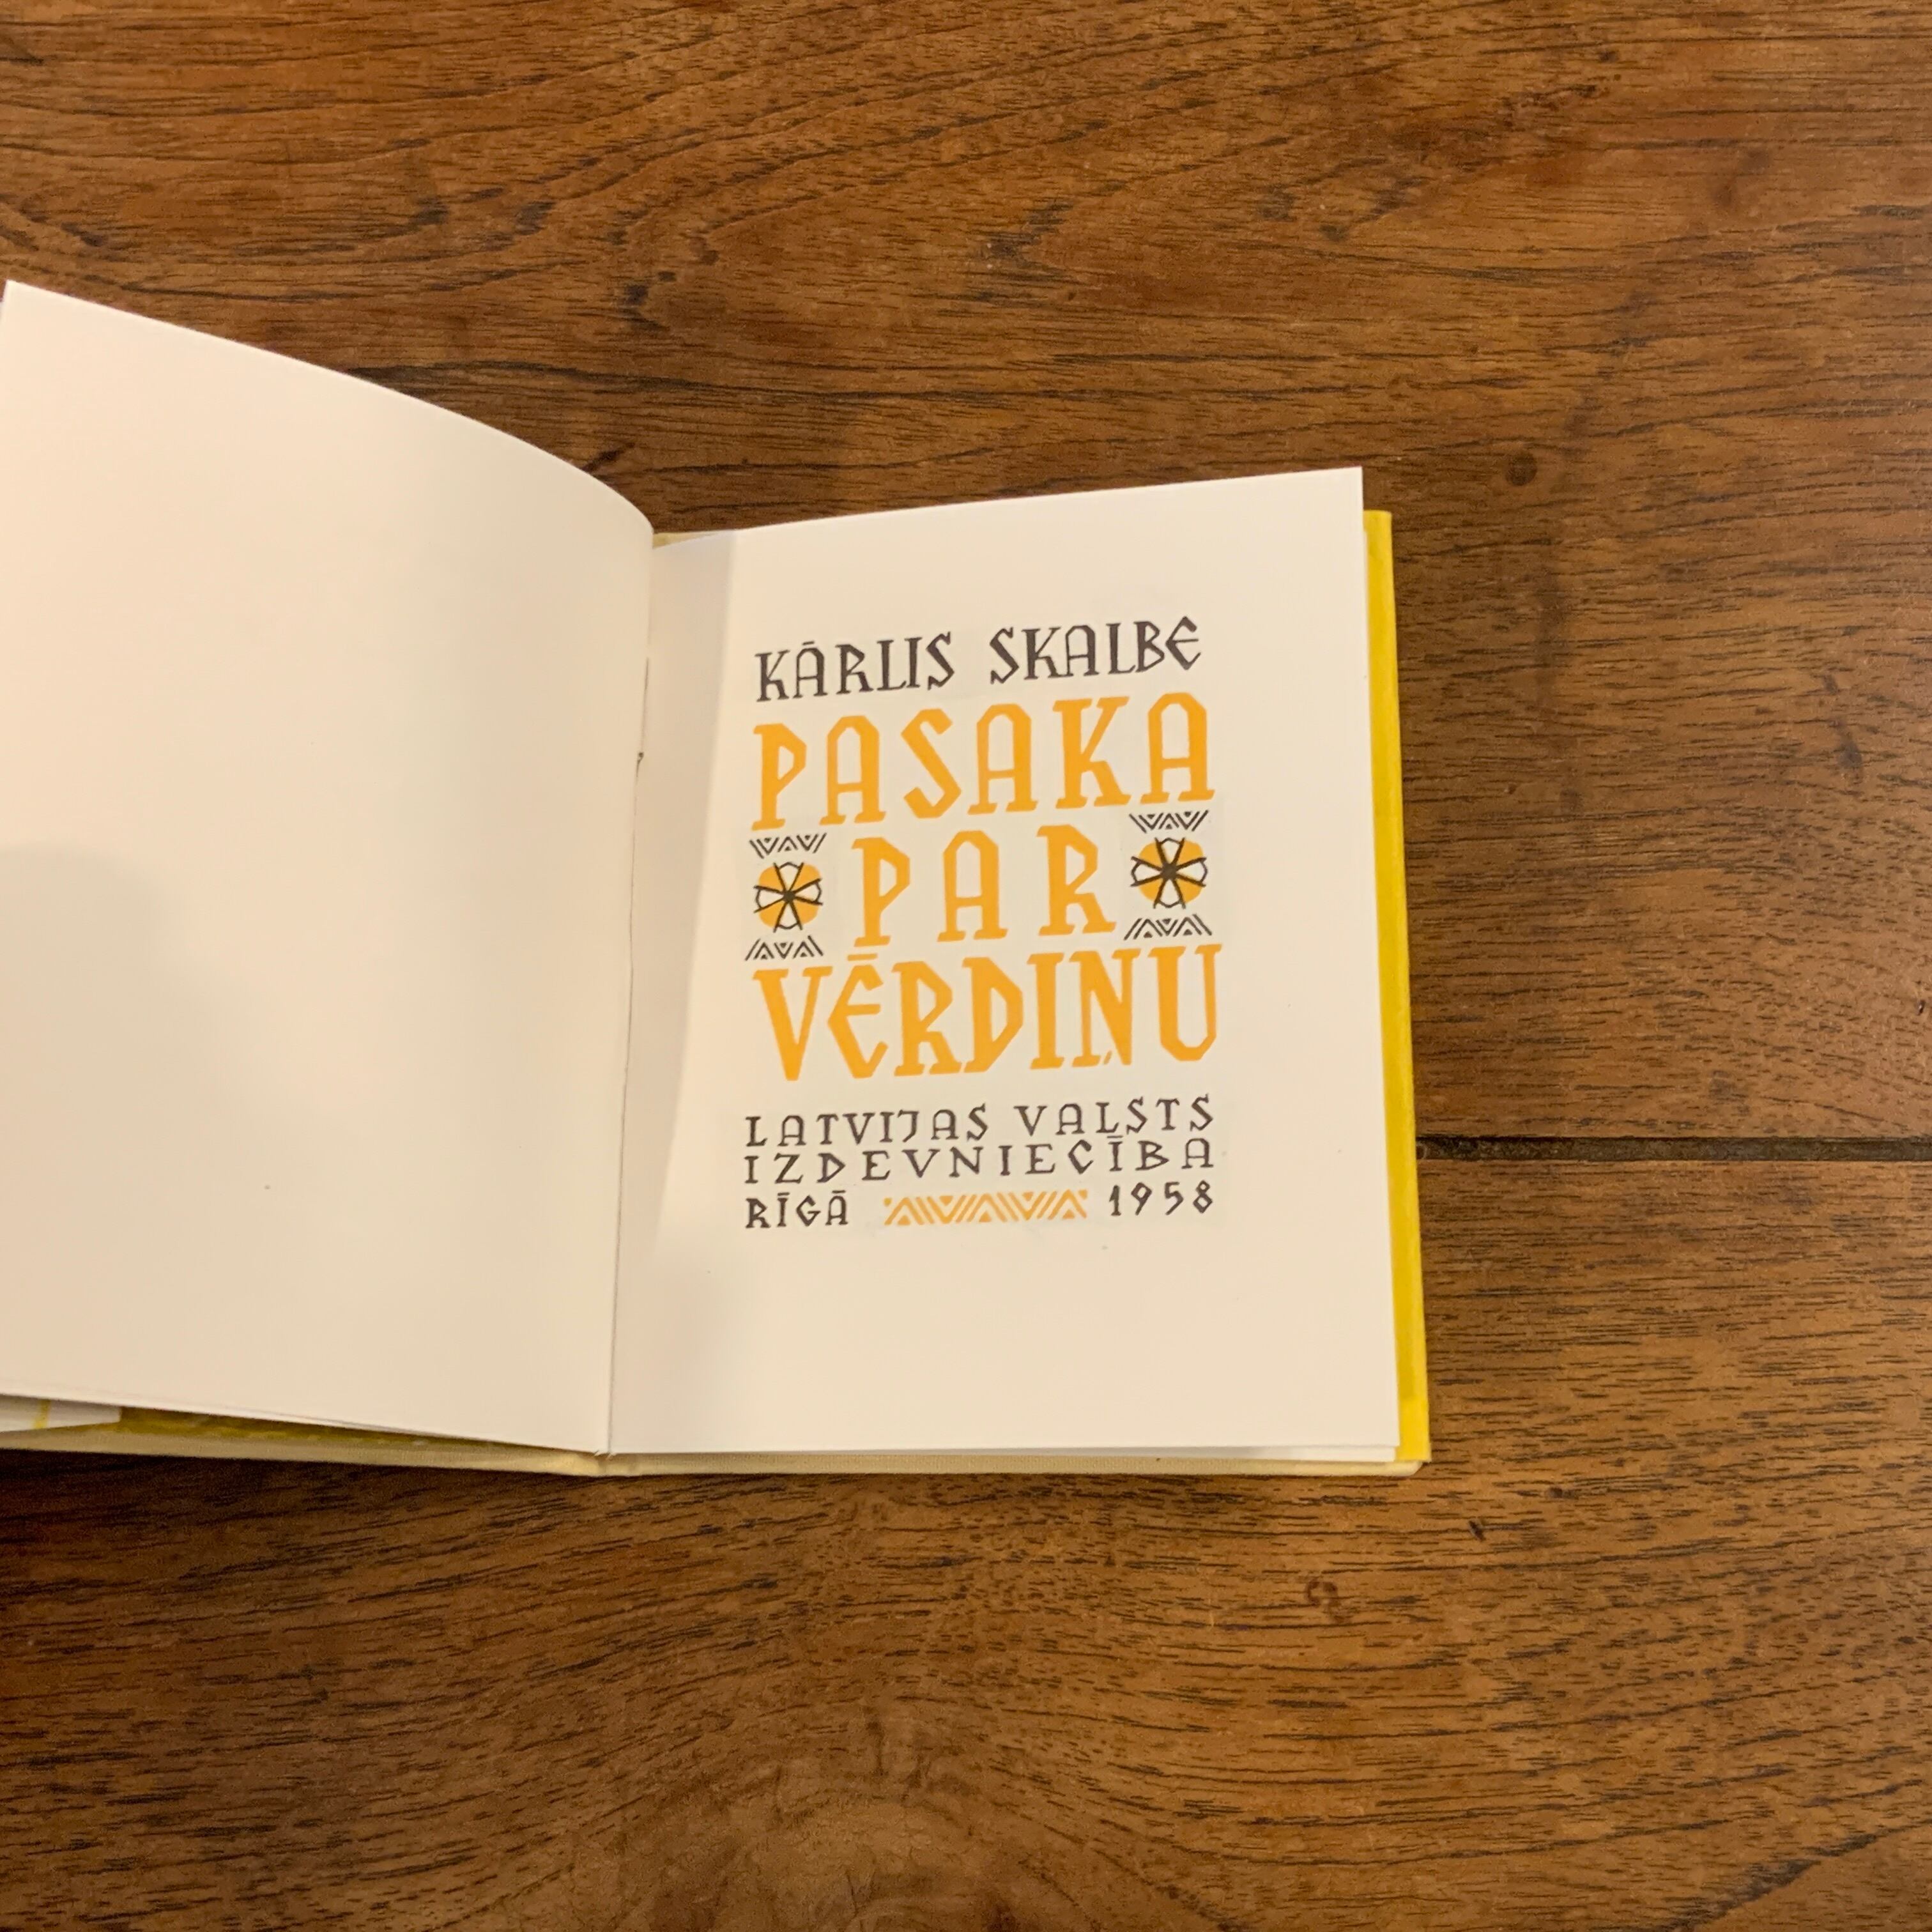 KĀRLIS SKALBE
PASAKA
PAR
VĒRDIŅU
LATVIJAS VALSTS
IZDEVNIECĪBA
RĪGĀ 1958